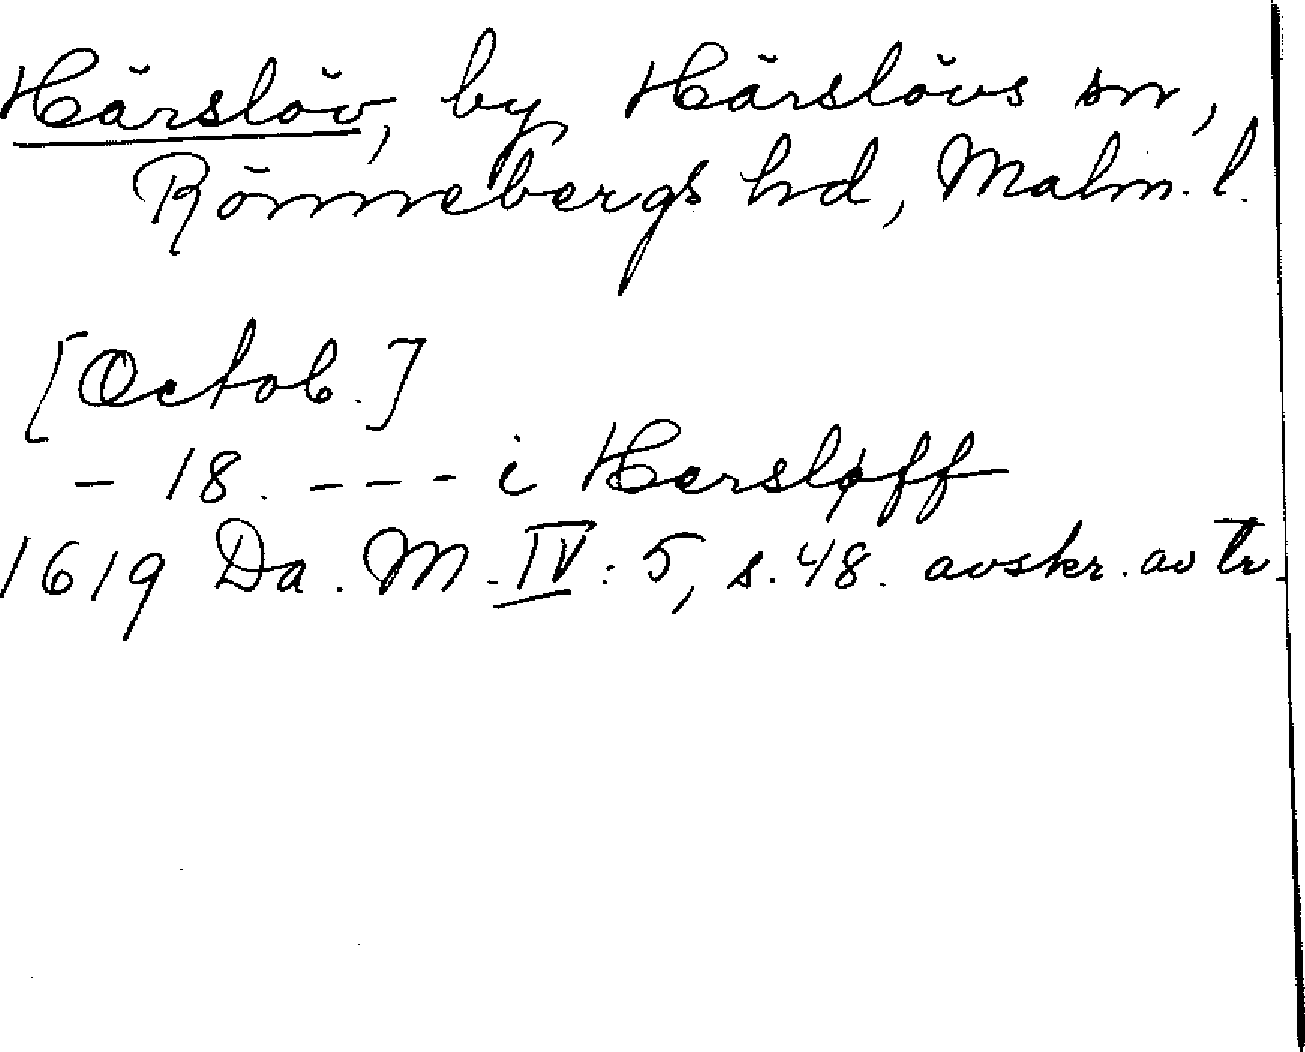 Härslöv, by Härslövs sn,
Rönnebergs hd, Malm. l.
[Octob.]
- 18. - - - i Hersløff
1619 Da. M. IV: 5, s. 48. avskr. av tr.